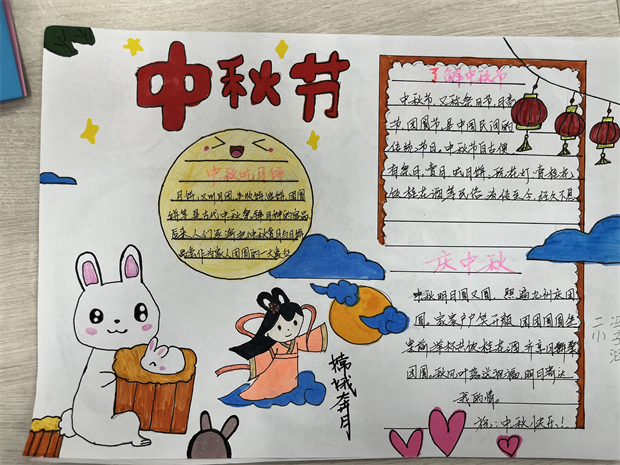 中秋节
中秋吃月饼
月饼,又叫月团、丰收饼、宫饼、团圆
饼等,是古代中秋祭拜月神的供品
后来人们逐渐把中秋赏月与品尝
月饼作为家人团圆的一大象征
了解中秋节
中秋节,又称祭月节、月亮
节、团圆节,是中国民间的
传统节日。中秋节自古便
有祭月、赏月、吃月饼、玩花灯、赏桂花、
饮桂花酒等民俗,流传至今,经久不息
庆中秋
中秋明月圆又圆,照遍九州庆团
圆。家家户户笑开颜,团团圆圆坐
桌前。举杯共饮桂花酒,齐享月饼聚
团圆。秋风吹落送祝福,明月寄达
我的情。
祝:中秋快乐!
嫦娥奔月
二小